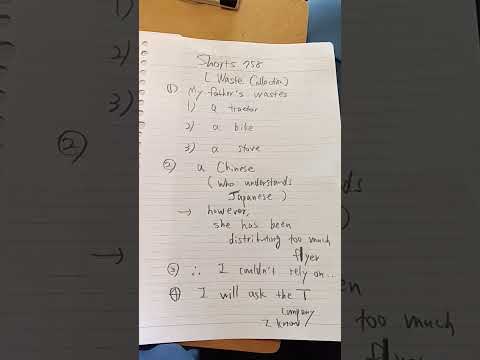 Shorts 758
( Waste Collection )
① My father's wastes
1) a tractor
2) a bike
3) a stove
② a Chinese
( who understands
Japanese )
→ however,
she has been
distributing too much
flyer
③ ∴ I couldn't rely on...
④ I will ask the T
company
I know